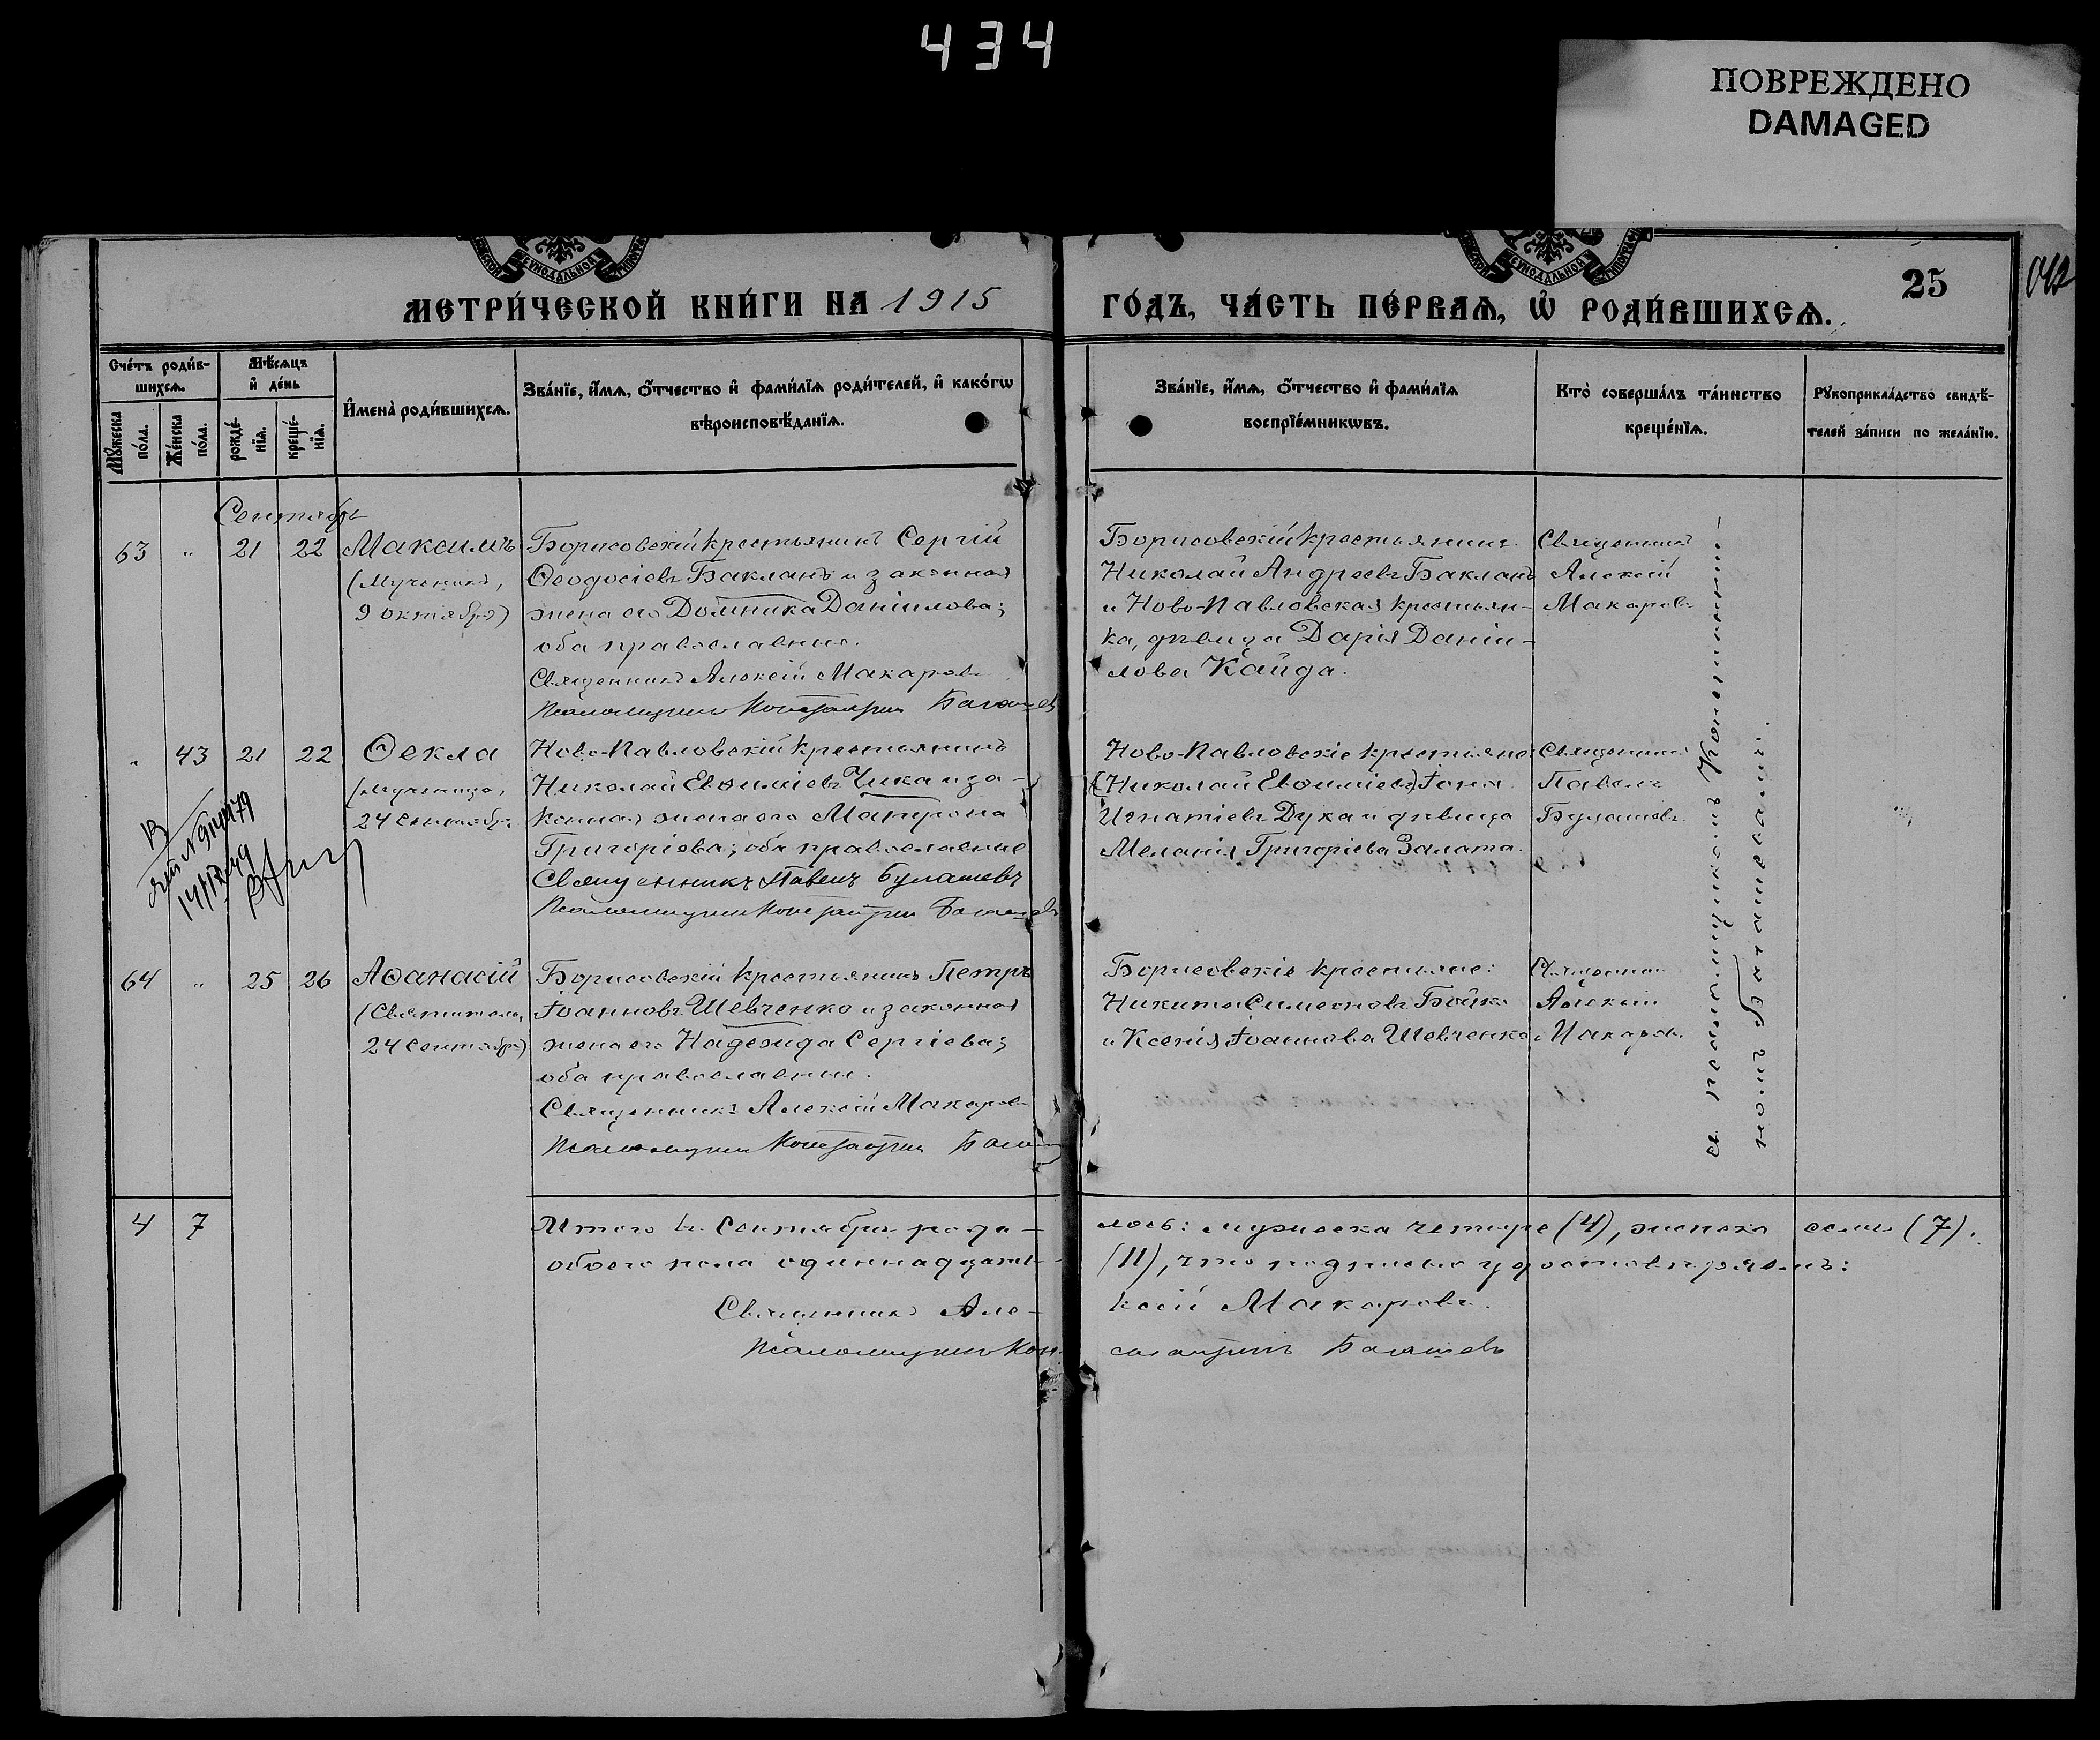 434
ПОВРЕЖДЕНО
DAMAGED
МЕТРИ́ЧЕСКОЙ КНИ́ГИ НА 1915
ГО́ДЪ, ЧА́СТЬ ПЕ́РВАѦ, Ѡ РОДИ́ВШИХСѦ.
25
Сче́тъ роди́в-
шихсѧ.
Мѣ́сѧцъ
и де́нь
Мꙋ́жеска
по́ла.
Же́нска
по́ла.
рожде́-
нїѧ.
креще́-
нїѧ.
И҆мена̀ роди́вшихсѧ.
Зва́нїе, и҆́мѧ, ѻ҆́тчество и҆ фами́лїѧ роди́телей, и҆ како́гѡ
вѣроисповѣ́данїѧ.
Зва́нїе, и҆́мѧ, ѻ҆́тчество и҆ фами́лїѧ
воспрїе́мникѡвъ.
Кто̀ соверша́лъ та́инство
креще́нїѧ.
Рꙋкоприкла́дство свидѣ́-
телей за́писи по жела́нїю.
Сентябрь
63 " 21 22 Максимъ
(Мученикъ,
9 октября)
Борисовскій крестьянинъ Сергій
Ѳеодосіевъ Бакланъ и законная
жена его Домника Даніилова;
оба православные.
Священникъ Алексій Макаровъ
Псаломщикъ Константинъ Балашев
Борисовскій крестьянинъ
Николай Андреевъ Бакланъ
и Ново-Павловская крестьян-
ка, дѣвица Дарія Даніи-
лова Кайда.
Священникъ
Алексій
Макаровъ
" 43 21 22 Ѳекла
(мученица,
24 сентября
Ново-Павловскій крестьянинъ
Николай Евѳиміевъ Чика и за-
конная жена его Матрона
Григоріева; оба православные
Священникъ Павелъ Булашевъ
Псаломщикъ Константинъ Балашевъ
Ново-Павловскіе крестьяне:
(Николай Евѳиміевъ) Іона
Игнатіевъ Дука и дѣвица
Меланія Григоріева Залата.
Священникъ
Павелъ
Булашевъ
64 " 25 26 Аѳанасій
(Святитель,
24 сентября)
Борисовскій крестьянинъ Петръ
Іоанновъ Шевченко и законная
жена его Надежда Сергіева;
оба православные.
Священникъ Алексій Макаровъ
Псаломщикъ Константинъ Бала
Борисовскіе крестьяне:
Никита Симеоновъ Бойко
и Ксенія Іоаннова Шевченко
Священник
Алексій
Макаровъ.
съ псаломщикомъ Константи-
номъ Балашевымъ.
4 7
Итого въ Сентябрѣ роди-
лось: мужеска четыре (4), женска семь (7).
обоего пола одиннадцать
(11), что подписью удостовѣряемъ:
Священникъ Але-
ксій Макаровъ.
Псаломщикъ Кон
стантинъ Балашевъ